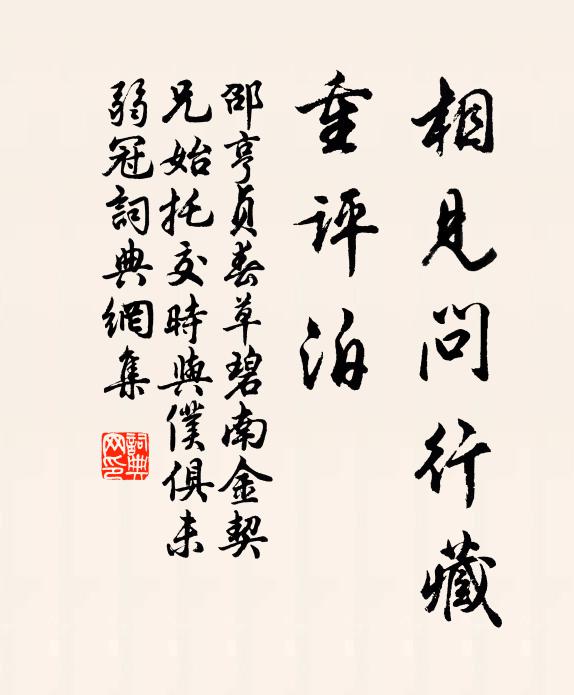 相見問行藏
重評泊
邵亨貞春草碧南金契
兄始托交時與僕俱未
弱冠詞典網集
詞典網印